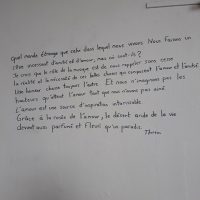 Quel monde étrange que celui dans lequel nous vivons. Nous faisons un
rêve incessant d'amitié et d'amour, mais où sont-ils ?
Je crois que le rôle de la musique est de nous rappeler sans cesse
la réalité et la nécessité de ces belles choses qui composent l'amour et l'amitié.
Une humeur chasse toujours l'autre. Et nous n'imaginons pas les
hauteurs qu'atteint l'amour tant que nous n'avons pas aimé.
L'amour est une source d'inspiration intarissable.
Grâce à la rosée de l'amour, le désert aride de la vie
devient aussi parfumé et fleuri qu'un paradis.